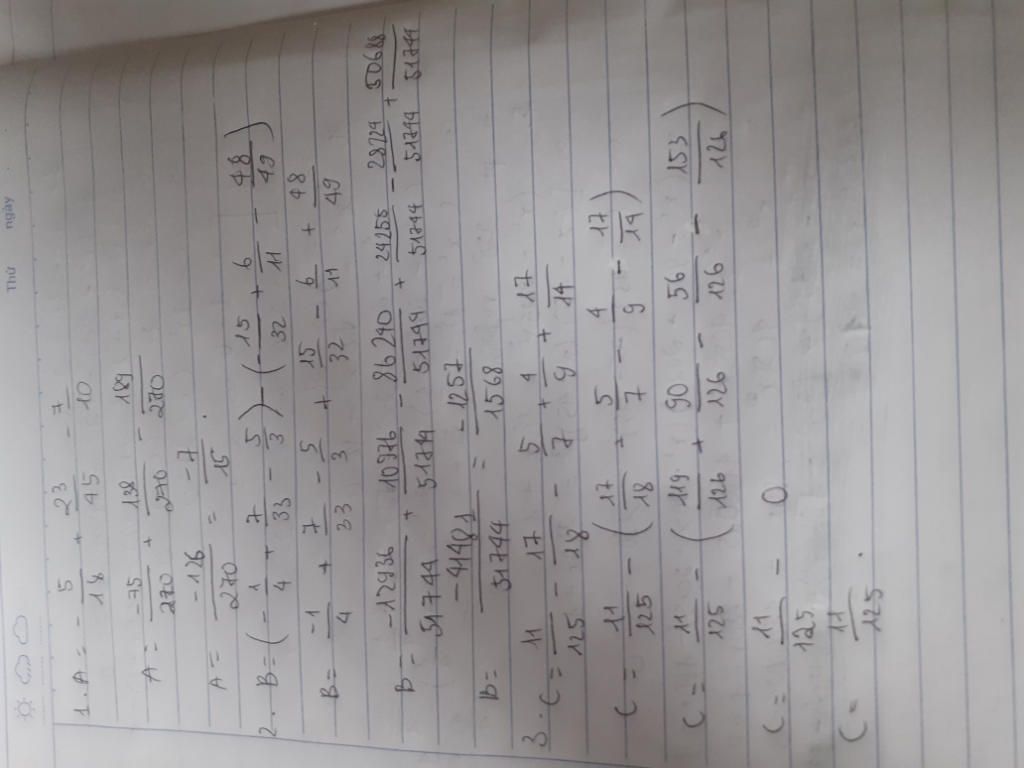 Thứ ngày
1. A = - 5/18 + 23/45 - 7/10
A = -75/270 + 138/270 - 189/270
A = -126/270 = -7/15 .
2. B = (- 1/4 + 7/33 - 5/3) - (- 15/32 + 6/11 - 48/49)
B = -1/4 + 7/33 - 5/3 + 15/32 - 6/11 + 48/49
B = -12936/51744 + 10976/51744 - 86240/51744 + 24255/51744 - 28224/51744 + 50688/51744
B = -41481/51744 = -1257/1568
3. C = 11/125 - 17/18 - 5/7 + 4/9 + 17/14
C = 11/125 - (17/18 + 5/7 - 4/9 - 17/14)
C = 11/125 - (119/126 + 90/126 - 56/126 - 153/126)
C = 11/125 - 0
C = 11/125 .